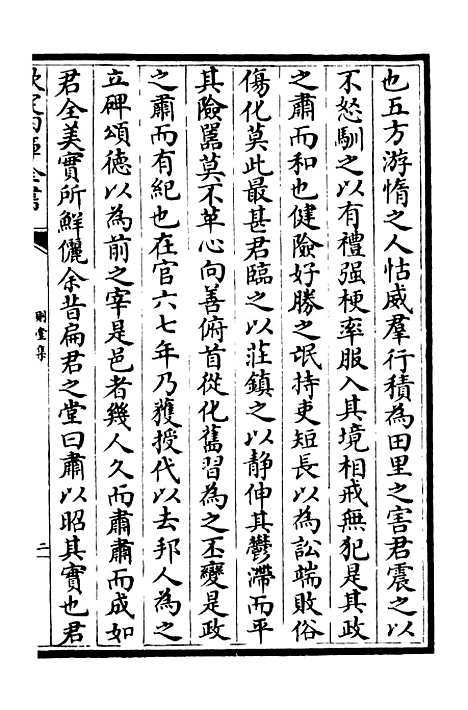 也五方游惰之人怙威羣行積為田里之害君震之以
不怒馴之以有禮强梗率服入其境相戒無犯是其政
之肅而和也健險好勝之氓持吏短長以為訟端敗俗
傷化莫此最甚君臨之以莊鎮之以静伸其鬱滯而平
其險嚚莫不革心向善俯首從化舊習為之丕變是政
之肅而有紀也在官六七年乃獲授代以去邦人為之
立碑頌徳以為前之宰是邑者幾人久而肅肅而成如
君全美實所鮮儷余昔扁君之堂曰肅以昭其實也君
欽定四庫全書
剛堂集
二